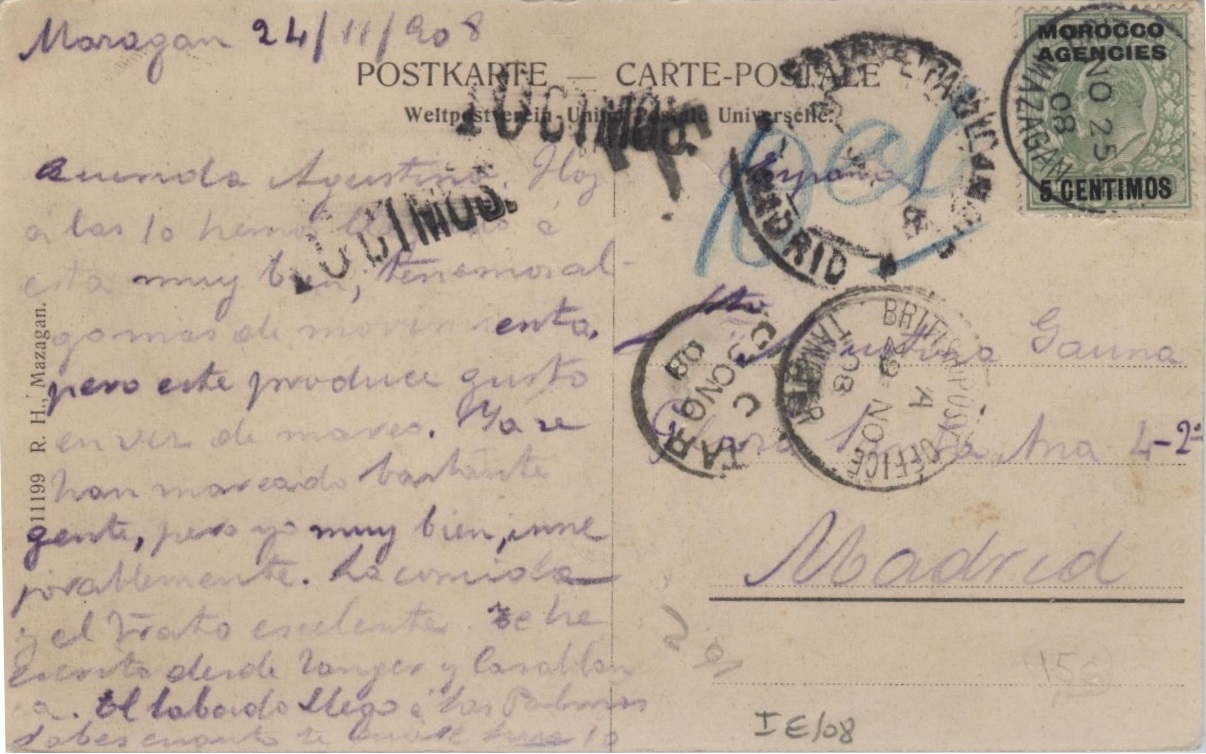 Mazagan 24/11/908
POSTKARTE — CARTE-POSTALE
Weltpostverein - Union Postale Universelle.
MOROCCO
AGENCIES
5 CENTIMOS
MAZAGAN
NO 25
08
10 CTMOS.
10 CTMOS.
T
MADRID
Querida Agustina. Hoy
a las 10 hemos llegado á
esta muy bien, tenemos al-
go mas de movimiento,
pero este produce gusto
en vez de mareo. Ya se
han mareado bastante
gente, pero yo muy bien, inme
jorablemente. La comida
y el trato escelente. Te he
escrito desde Tanger y Casablan
ca. El sabado llego á las Palmas
Sabes cuanto te
España
Srta Agustina Gauna
Plaza Santa Ana 4-2º
Madrid
BRITISH POST OFFICE
A
29 NO
08
TANGIER
C
30 NO
08
R. H., Mazagan.
11199
156
I E/08